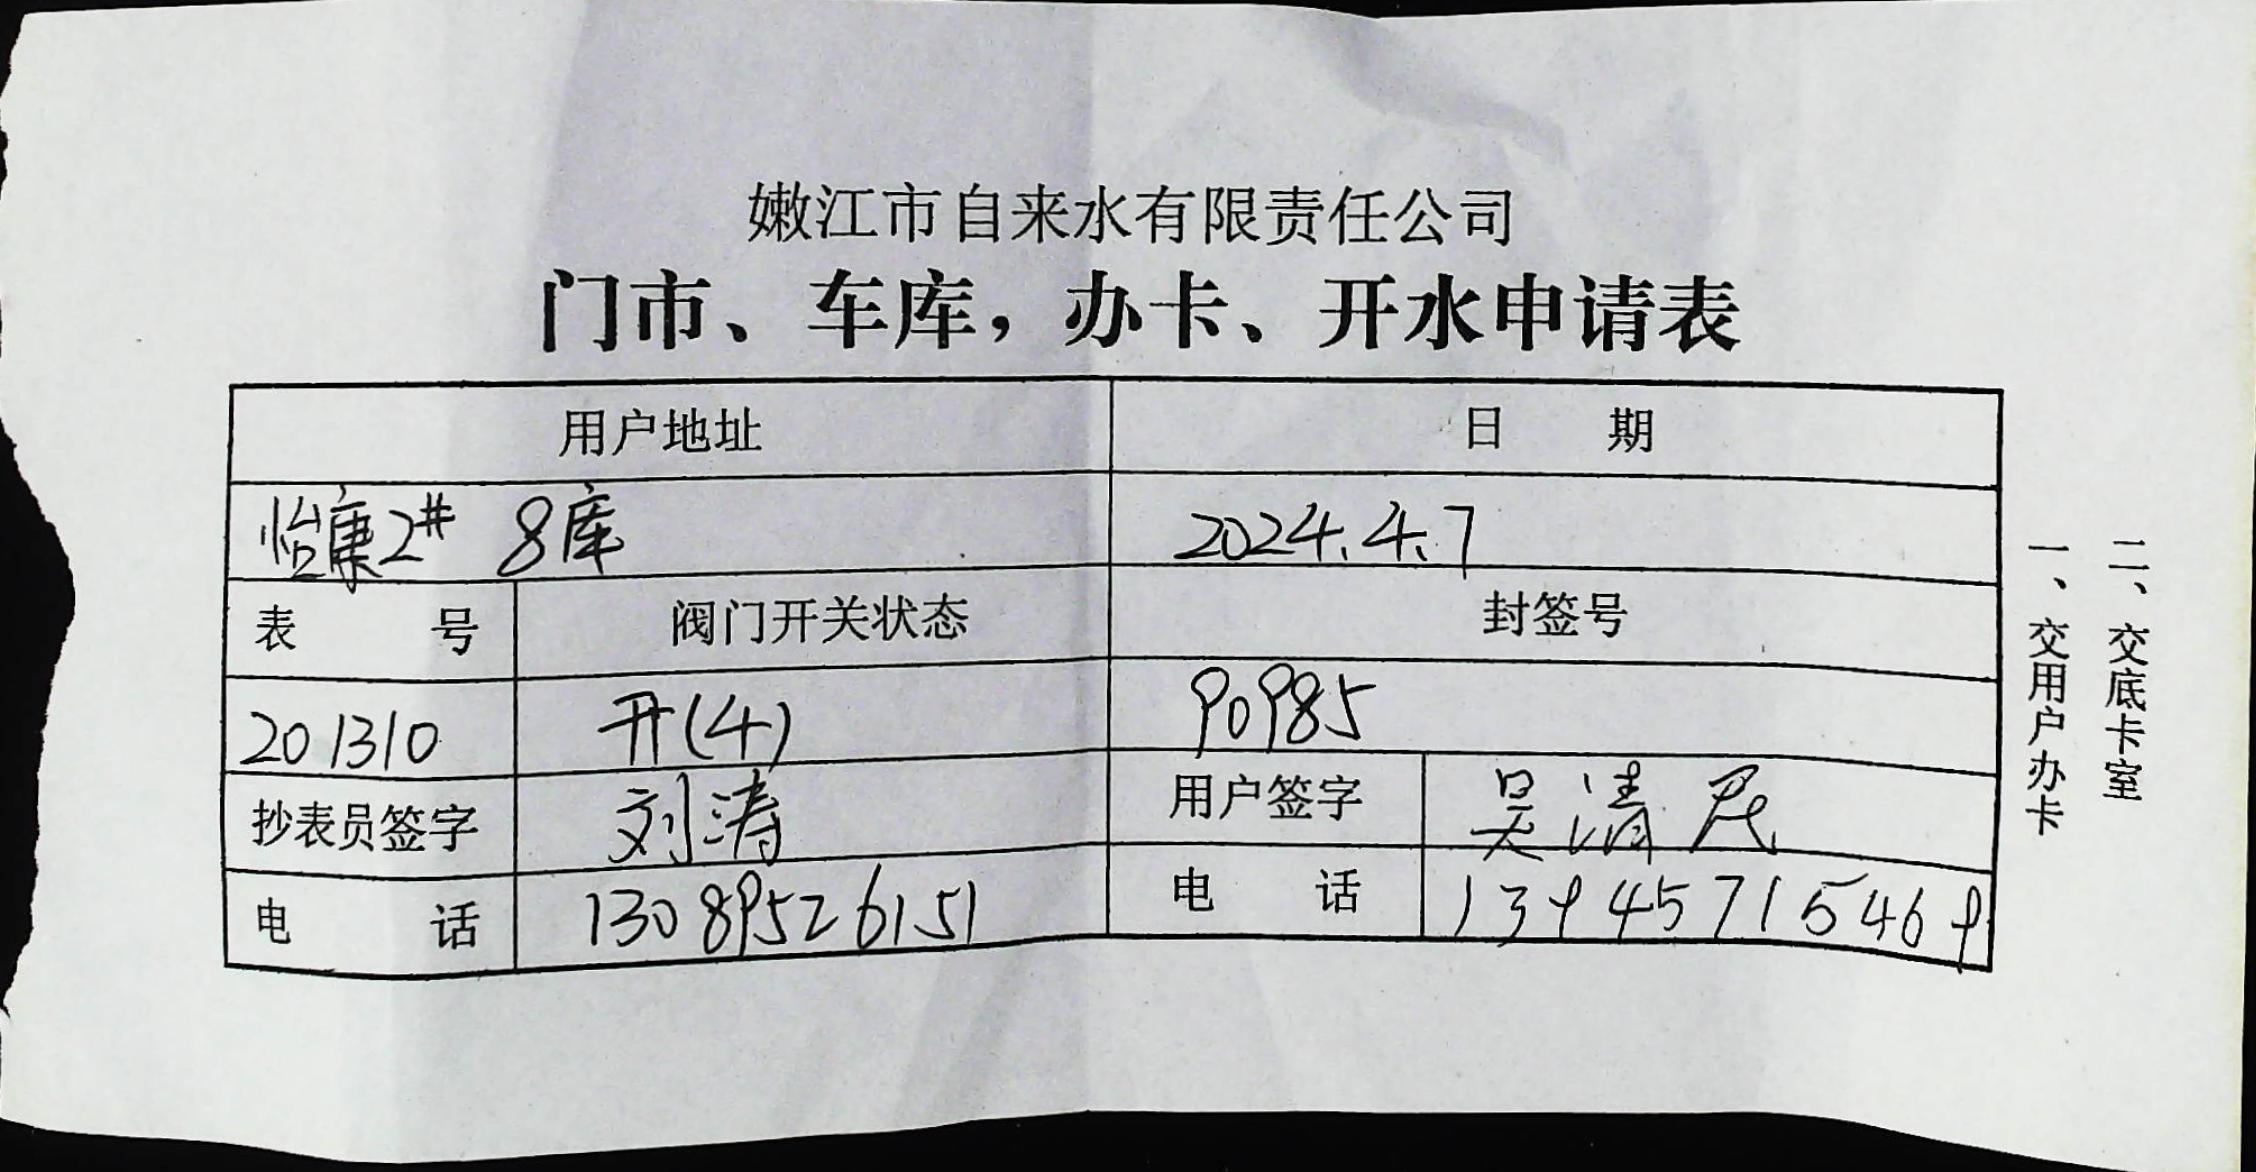 嫩江市自来水有限责任公司
门市、车库，办卡、开水申请表
用户地址 日 期
怡康2# 8库 2024.4.7
表 号 阀门开关状态 封签号
201310 开(4) 90985
抄表员签字 刘涛 用户签字 吴清民
电 话 13089526151 电 话 13945715469
一、交用户办卡
二、交底卡室